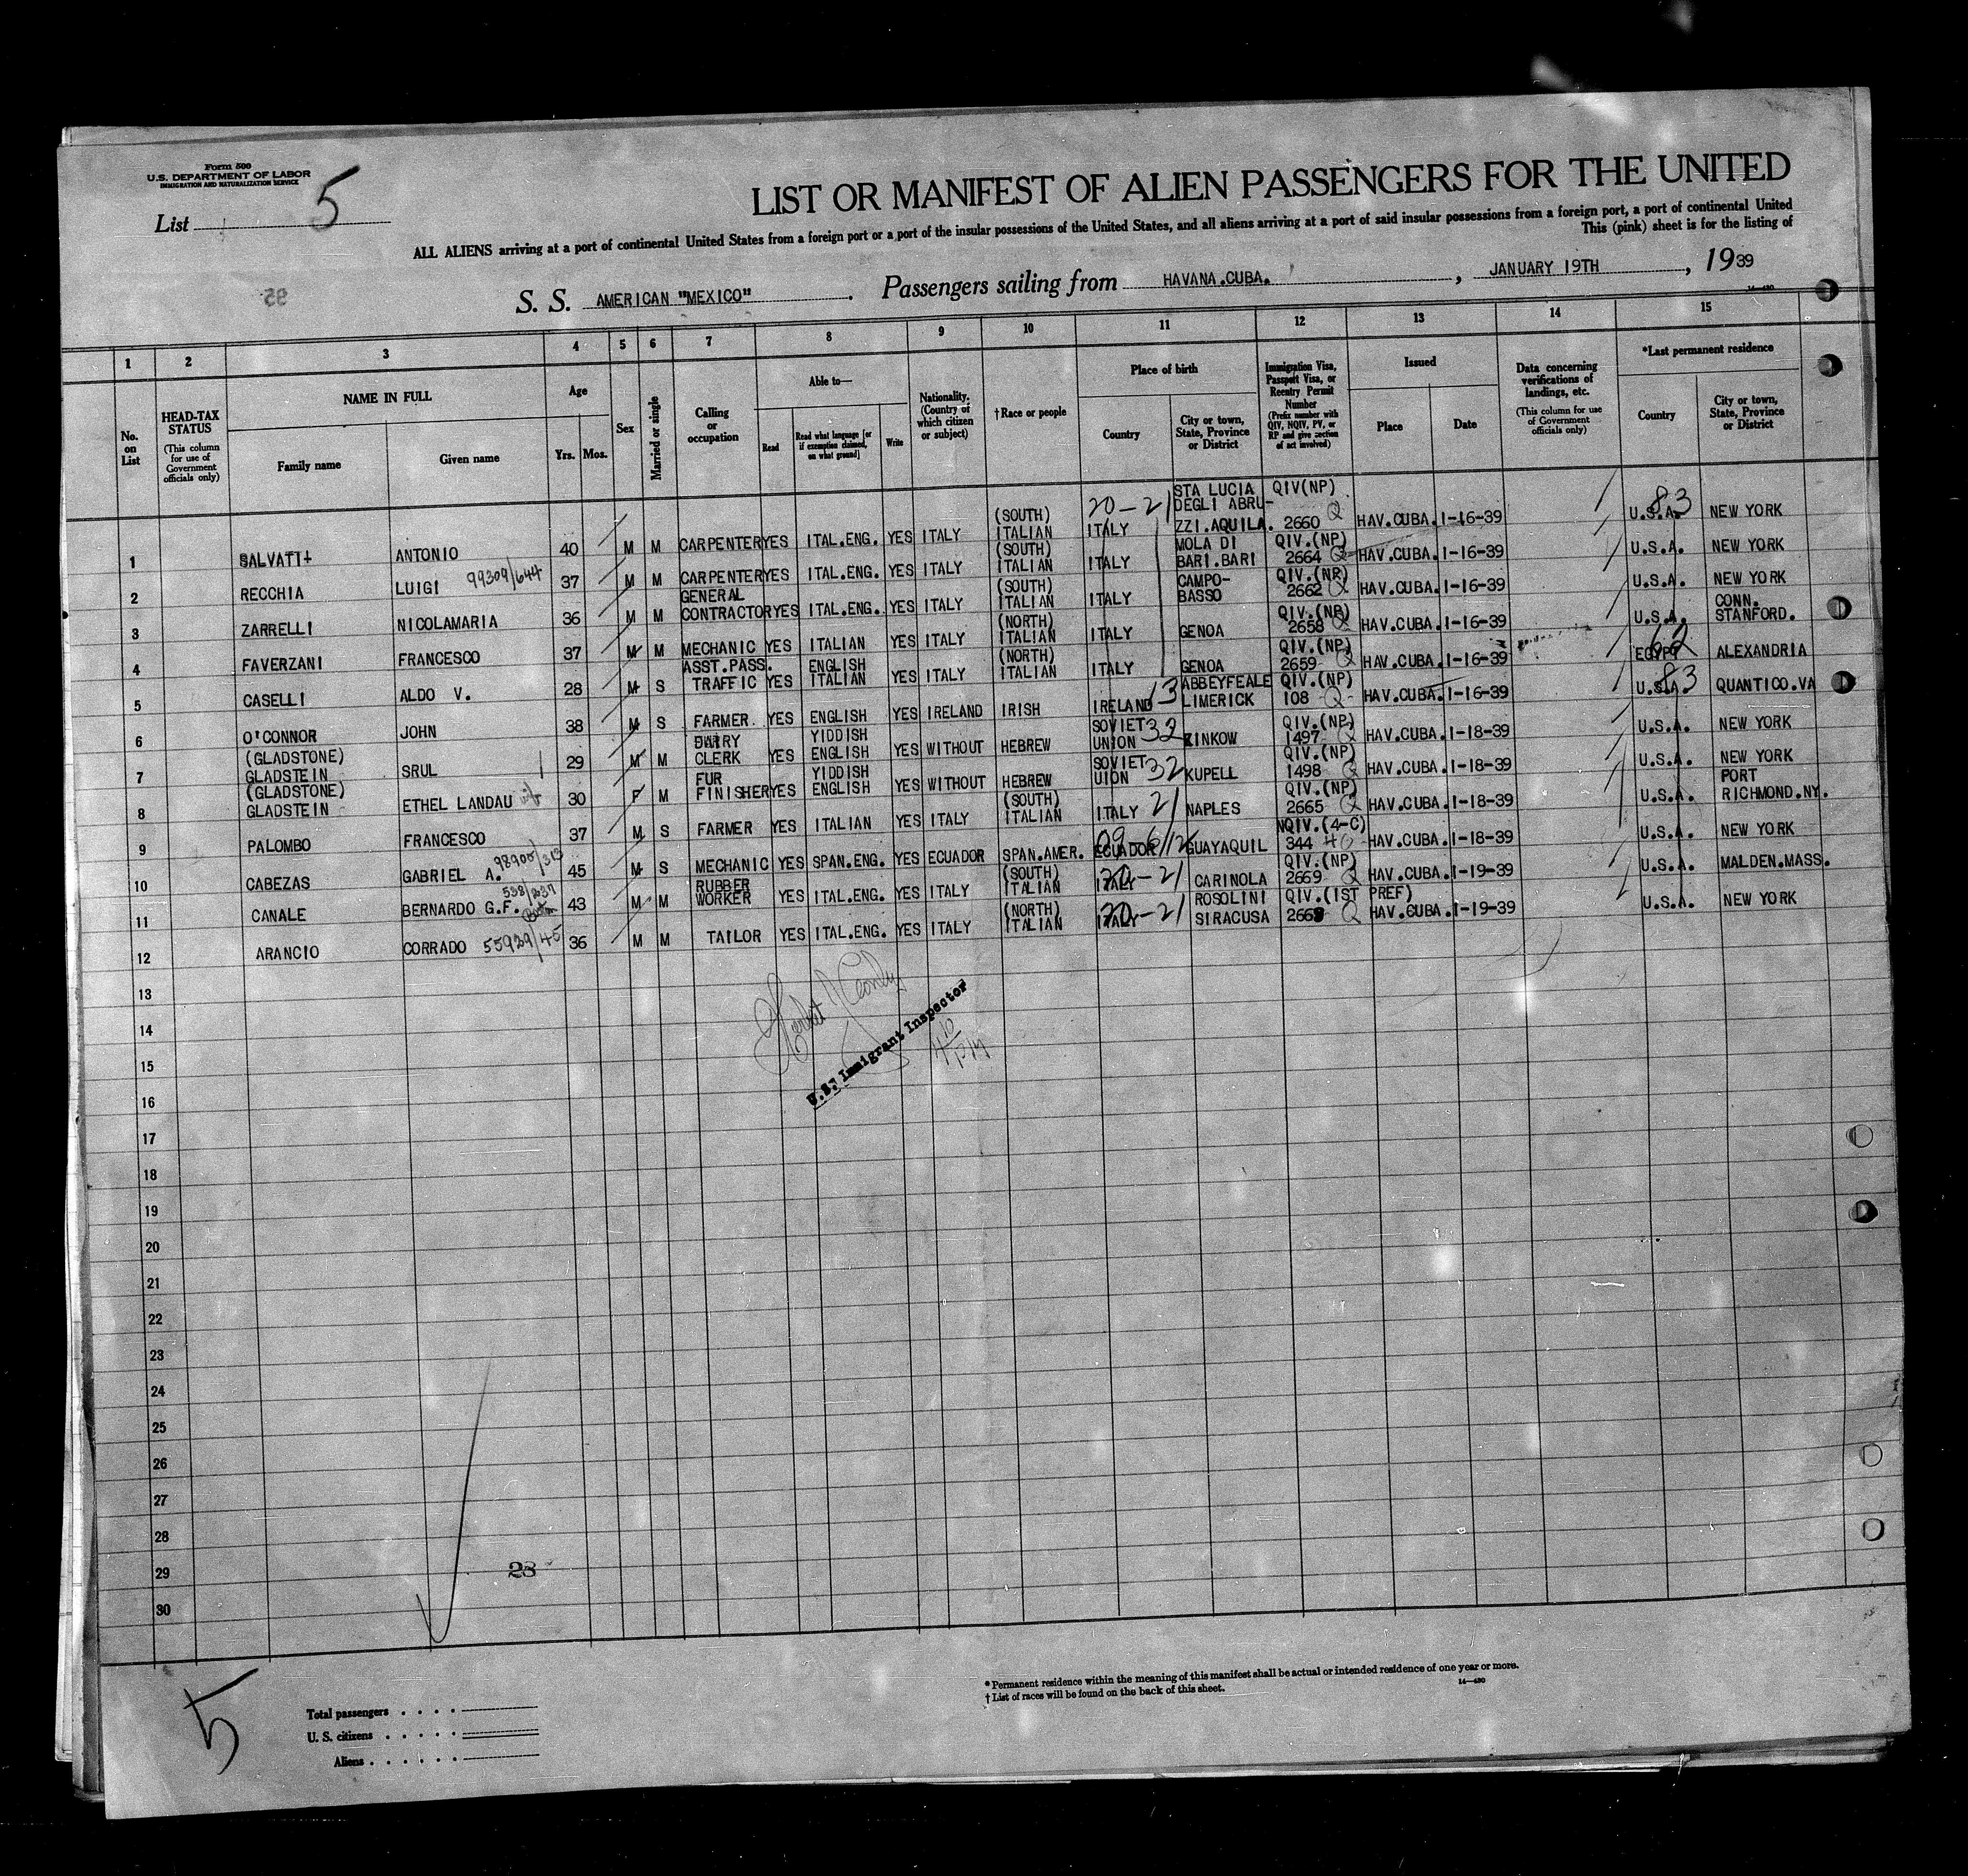 Form 500
U.S. DEPARTMENT OF LABOR
IMMIGRATION AND NATURALIZATION SERVICE
List 5
LIST OR MANIFEST OF ALIEN PASSENGERS FOR THE UNITED
ALL ALIENS arriving at a port of continental United States from a foreign port or a port of the insular possessions of the United States, and all aliens arriving at a port of said insular possessions from a foreign port, a port of continental United
This (pink) sheet is for the listing of
S. S. AMERICAN "MEXICO" . Passengers sailing from HAVANA.CUBA. , JANUARY 19TH , 1939
14—430
1 2 3 4 5 6 7 8 9 10 11 12 13 14 15
No. on List
HEAD-TAX STATUS (This column for use of Government officials only)
NAME IN FULL
Family name
Given name
Age
Yrs. Mos.
Sex
Married or single
Calling or occupation
Able to—
Read
Read what language [or if exemption claimed, on what ground]
Write
Nationality. (Country of which citizen or subject)
†Race or people
Place of birth
Country
City or town, State, Province or District
Immigration Visa, Passport Visa, or Reentry Permit Number (Prefix number with QIV, NQIV, PV, or RP and give section of act involved)
Issued
Place
Date
Data concerning verifications of landings, etc. (This column for use of Government officials only)
*Last permanent residence
Country
City or town, State, Province or District
1 SALVATI ANTONIO 40 M M CARPENTER YES ITAL.ENG. YES ITALY (SOUTH) ITALIAN 20-21 ITALY STA LUCIA DEGLI ABRU-ZZI.AQUILA. QIV(NP) 2660 Q HAV.CUBA. 1-16-39 U.S.A. 83 NEW YORK
2 RECCHIA LUIGI 99309/644 37 M M CARPENTER YES ITAL.ENG. YES ITALY (SOUTH) ITALIAN ITALY MOLA DI BARI.BARI QIV.(NP) 2664 Q HAV.CUBA. 1-16-39 U.S.A. NEW YORK
3 ZARRELLI NICOLAMARIA 36 M M GENERAL CONTRACTOR YES ITAL.ENG. YES ITALY (SOUTH) ITALIAN ITALY CAMPO-BASSO QIV.(NP) 2662 Q HAV.CUBA. 1-16-39 U.S.A. NEW YORK
4 FAVERZANI FRANCESCO 37 M M MECHANIC YES ITALIAN YES ITALY (NORTH) ITALIAN ITALY GENOA QIV.(NP) 2658 Q HAV.CUBA. 1-16-39 U.S.A. CONN. STANFORD.
5 CASELLI ALDO V. 28 M S ASST.PASS. TRAFFIC YES ENGLISH ITALIAN YES ITALY (NORTH) ITALIAN ITALY GENOA QIV.(NP) 2659 Q HAV.CUBA. 1-16-39 EGYPT 62 ALEXANDRIA
6 O'CONNOR JOHN 38 M S FARMER. YES ENGLISH YES IRELAND IRISH IRELAND 13 ABBEYFEALE LIMERICK QIV.(NP) 108 Q HAV.CUBA. 1-16-39 U.S.A. 83 QUANTICO.VA
7 (GLADSTONE) GLADSTEIN SRUL 29 M M DAIRY CLERK YES YIDDISH ENGLISH YES WITHOUT HEBREW SOVIET UNION 32 ZINKOW QIV.(NP) 1497 Q HAV.CUBA. 1-18-39 U.S.A. NEW YORK
8 (GLADSTONE) GLADSTEIN ETHEL LANDAU 30 F M FUR FINISHER YES YIDDISH ENGLISH YES WITHOUT HEBREW SOVIET UION 32 KUPELL QIV.(NP) 1498 Q HAV.CUBA. 1-18-39 U.S.A. NEW YORK
9 PALOMBO FRANCESCO 37 M S FARMER YES ITALIAN YES ITALY (SOUTH) ITALIAN ITALY 21 NAPLES QIV.(NP) 2665 Q HAV.CUBA. 1-18-39 U.S.A. PORT RICHMOND.NY.
10 CABEZAS GABRIEL A. 98900/313 45 M S MECHANIC YES SPAN.ENG. YES ECUADOR SPAN.AMER. ECUADOR GUAYAQUIL NQIV.(4-C) 344 HAV.CUBA. 1-18-39 U.S.A. NEW YORK
11 CANALE BERNARDO G.F. 43 M M RUBBER WORKER YES ITAL.ENG. YES ITALY (SOUTH) ITALIAN ITALY 20-21 CARINOLA QIV.(NP) 2669 Q HAV.CUBA. 1-19-39 U.S.A. MALDEN.MASS.
12 ARANCIO CORRADO 55929/45 36 M M TAILOR YES ITAL.ENG. YES ITALY (NORTH) ITALIAN ITALY 20-21 ROSOLINI SIRACUSA QIV.(IST PREF) 2668 Q HAV.CUBA. 1-19-39 U.S.A. NEW YORK
13
14
U.S. Immigrant Inspector
15
16
17
18
19
20
21
22
23
24
25
26
27
28
29
28
30
5
Total passengers . . . .
U. S. citizens . . . . .
Aliens . . . . . .
* Permanent residence within the meaning of this manifest shall be actual or intended residence of one year or more.
† List of races will be found on the back of this sheet.
14—430